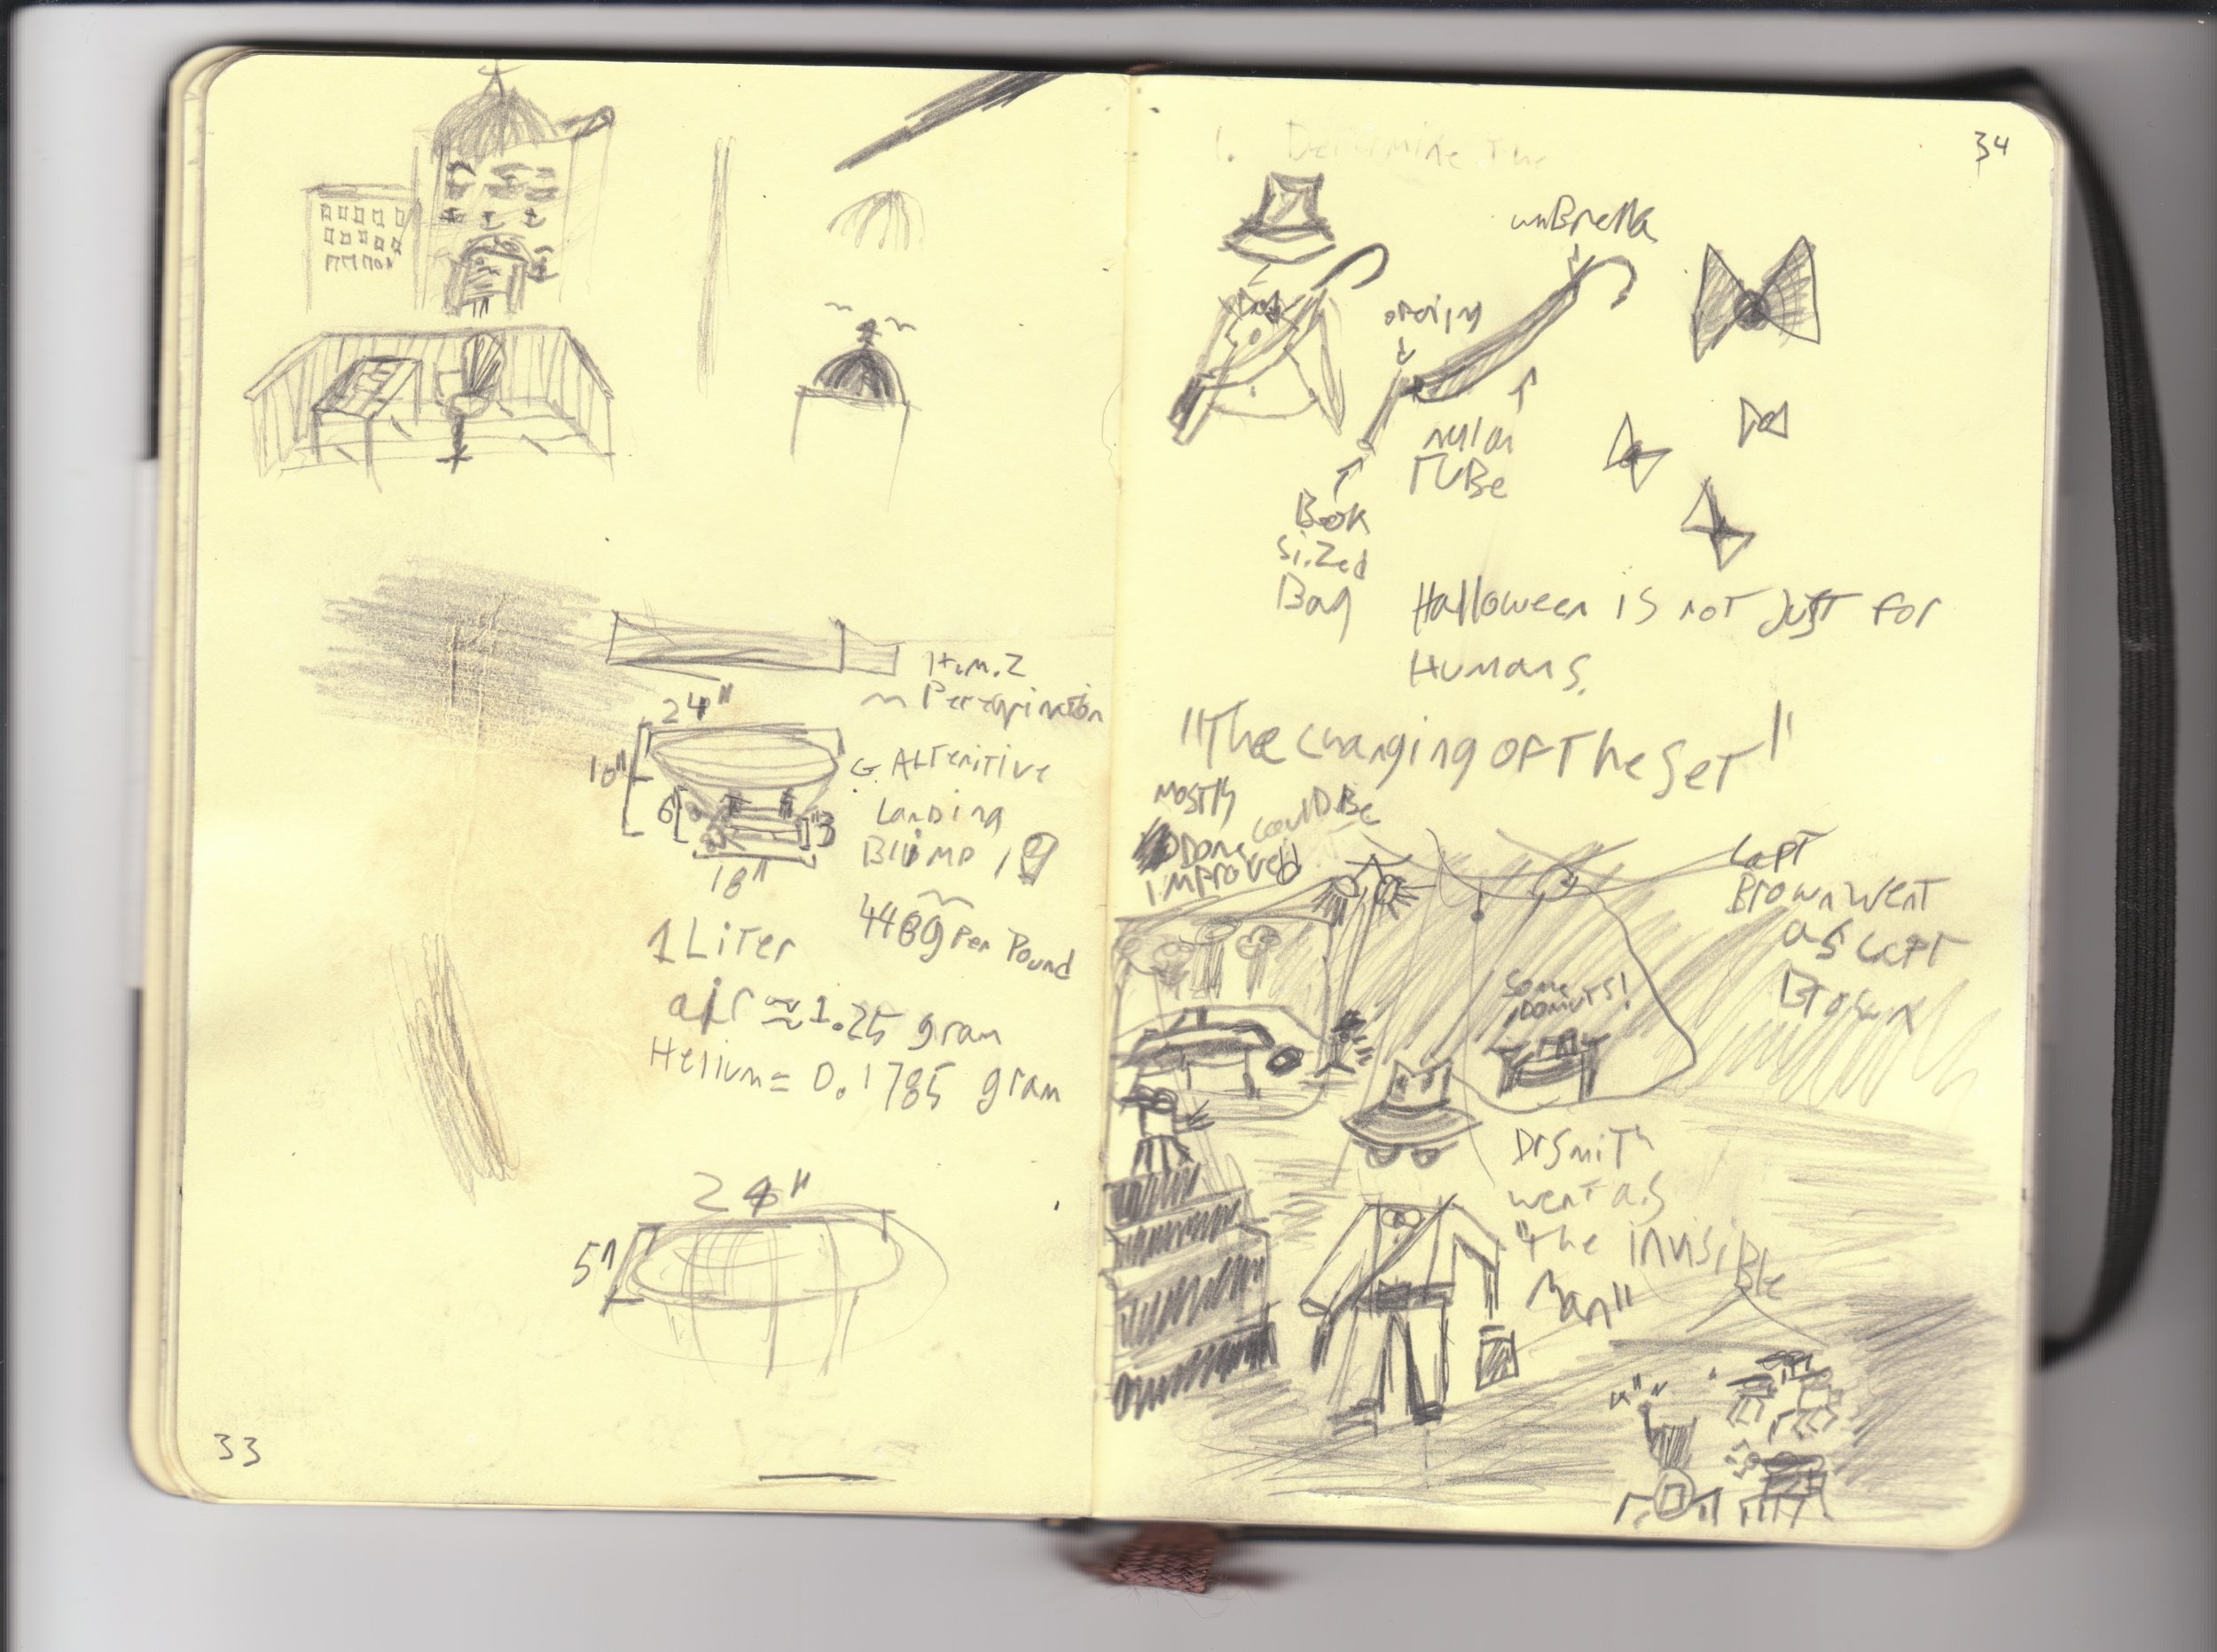 24"
10"
6"
3
18"
G. ALTERITIVE
LANDING
BLIMP
1 LITER
448g Per Pound
air ≈ 1.25 gram
Helium = 0.1785 gram
24"
5"
33
34
1. Determine The
umBrella
opening
nylon
TUBe
Book
sized
Bag
Halloween is not JUST for
Humans.
"The changing of The Set"
mostly
Done could Be
improved
Capt
Brown went
as Capt
Brown
Some
Donuts!
Dr Smith
went as
"The invisiBle
Man"